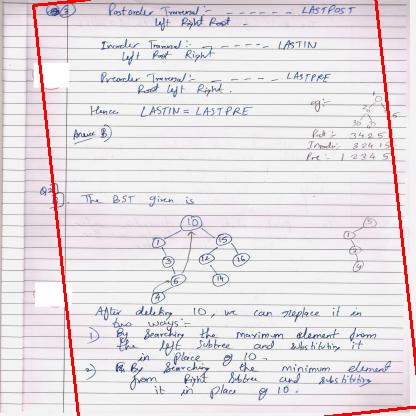 Postorder Traversal:- - - - - - - LASTPOST
Left Right Root.
Inorder Traversal:- - - - - - LASTIN
Left Root Right
Preorder Traversal:- - - - - - LASTPRE
Root Left Right.
Hence LASTIN = LASTPRE
eg:-
Answer B)
Post:- 3 4 2 5
Pre:- 1 2 3 4 5
The BST given is
10
1 15
3 12 16
6 14
4
After deleting 10, we can replace it in
two ways:-
1) By searching the maximum element from
the left subtree and substituting it
in place of 10.
2) By searching the minimum element
from Right Subtree and substituting
it in place of 10.